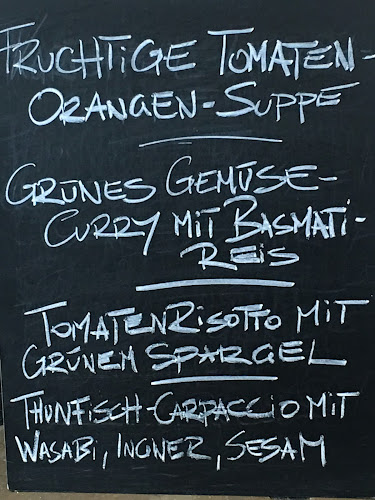 FRUCHTIGE TOMATEN-
ORANGEN-SUPPE
GRÜNES GEMÜSE-
CURRY MIT BASMATI-
REIS
TOMATENRISOTTO MIT
GRÜNEM SPARGEL
THUNFISCH-CARPACCIO MIT
WASABI, INGWER, SESAM